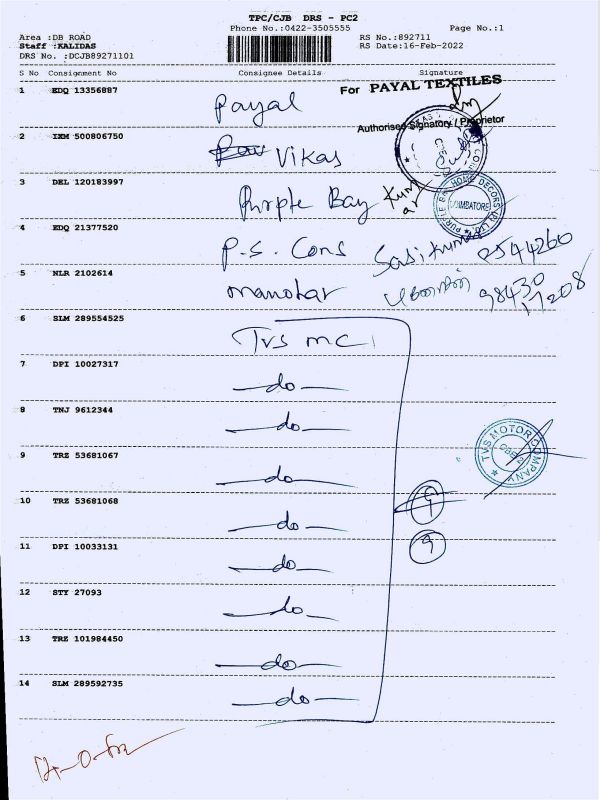 TPC/CJB DRS - PC2
Phone No.:0422-3505555 Page No.:1
Area :DB ROAD RS No.:892711
Staff :KALIDAS RS Date:16-Feb-2022
DRS No. :DCJB89271101
S No Consignment No Consignee Details Signature
1 EDQ 13356887 Payal For PAYAL TEXTILES
Authorised Signatory / Proprietor
2 IXM 500806750 Vikas
3 DEL 120183997 Purple Bay Kumar
PURPLE BAY HOME DECORS (P) LTD.
COIMBATORE
4 EDQ 21377520 P.S. Cons Sasikumar 2544260
5 NLR 2102614 manohar 98430
17208
6 SLM 289554525 TVS MC
7 DPI 10027317 -do-
8 TNJ 9612344 -do-
9 TRZ 53681067 -do-
TVS MOTOR COMPANY
10 TRZ 53681068 -do-
11 DPI 10033131 -do- 9
12 STY 27093 -do-
13 TRZ 101984450 -do-
14 SLM 289592735 -do-